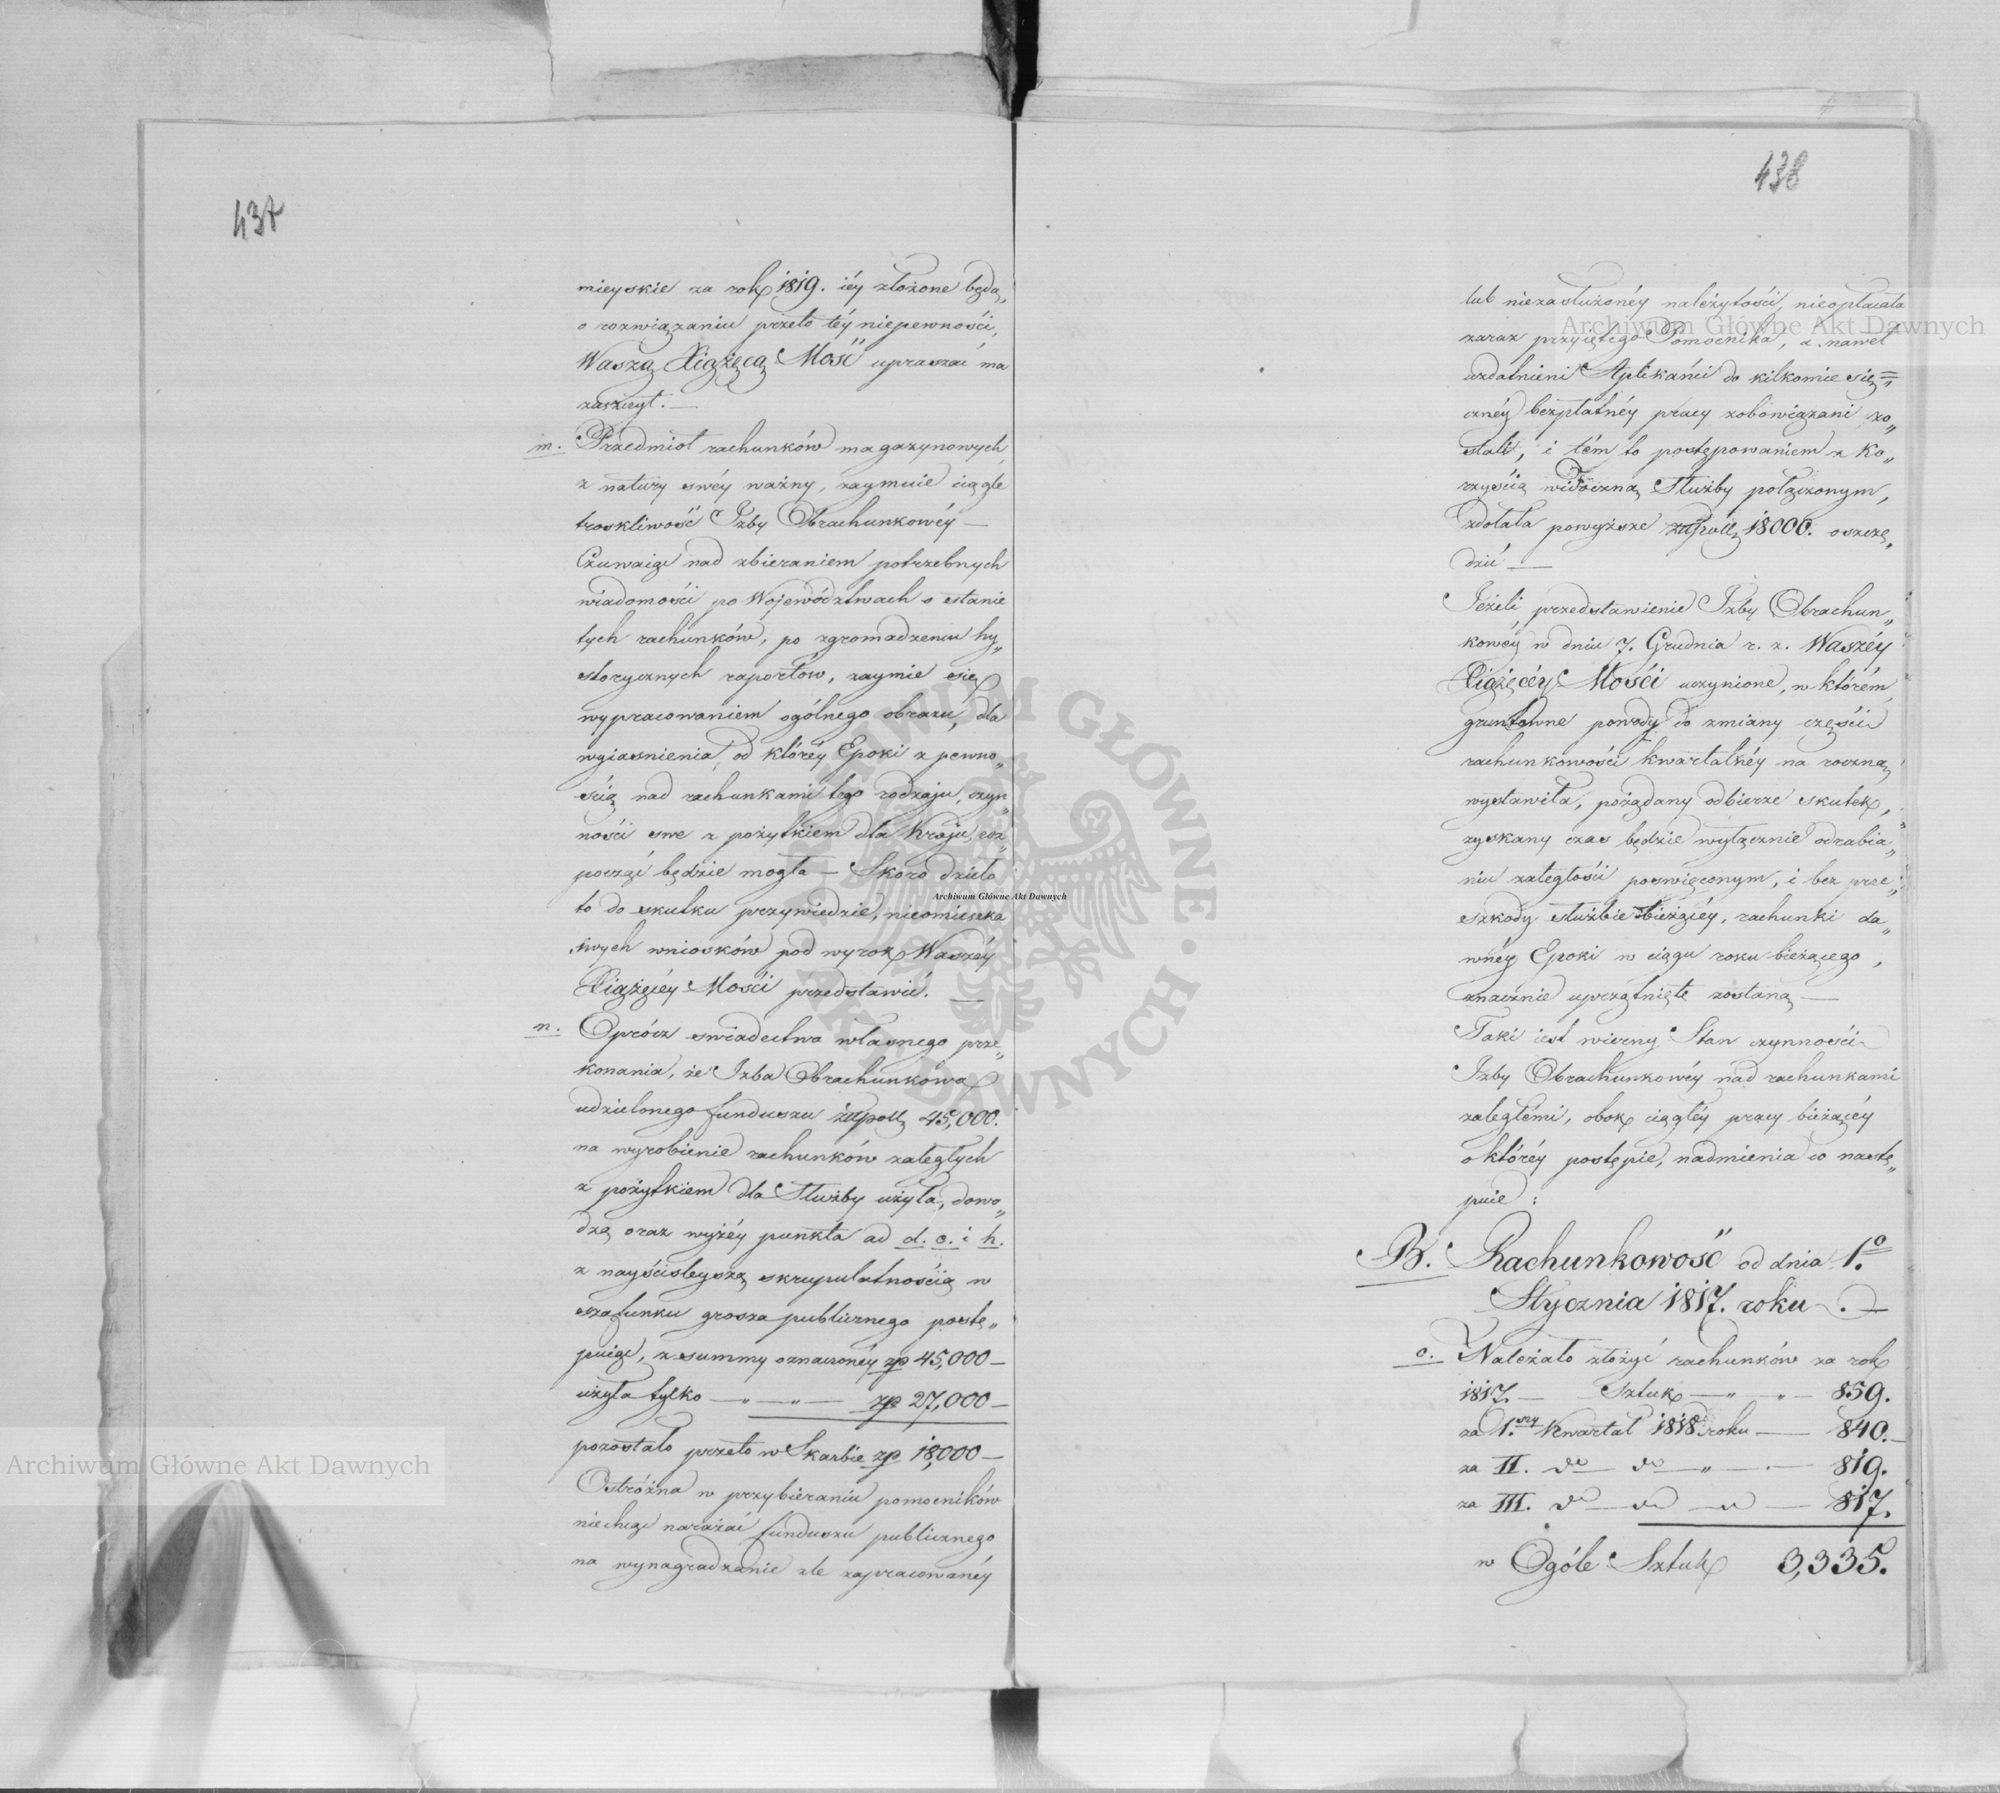 437
mieyskie za rok 1819. iéy złożone będą,
o rozwiązaniu przeto téy niepewności,
Waszą Xiążęcą Mość upraszać ma
zaszczyt. —
m. Przedmiot rachunków magazynowych
z natury swéy ważny, zaymuie ciągle
troskliwość Izby Obrachunkowéy —
Czuwaiąc nad zbieraniem potrzebnych
wiadomości po Województwach o stanie
tych rachunków, po zgromadzeniu hy„
storycznych raportów, zaymie się
wypracowaniem ogólnego obrazu, dla
wyiasnienia, od któréy Epoki z pewno„
ścią nad rachunkami tego rodzaju, czyn„
ności swe z pożytkiem dla Kraju, roz„
począć będzie mogła — Skoro dzieło
to do skutku przywiedzie, nieomieszka
swych wniosków pod wyrok Waszéy
Xiążęcéy Mości przedstawić. —
n. Oprócz swiadectwa własnego prze„
konania, że Izba Obrachunkowa
udzielonego funduszu złłpoll 45,000.
na wyrobienie rachunków zaległych
z pożytkiem dla Służby użyła, dowo„
dzą oraz wyżéy punkta ad d. e. i h.
z nayściśleyszą skrupulatnością w
szafunku grosza publicznego postę„
puiąc, z summy oznaczonéy zp 45,000 —
użyła tylko — „ — „ — zp 27,000 —
pozostało przeto w Skarbie zp 18,000 —
Ostróżna w przybieraniu pomocników
niechcąc narażać funduszu publicznego
na wynagradzanie źle zapracowanéy
438
lub niezasłużonéy należytości, nieopłacała
zaraz przyiętego Pomocnika, a nawet
uzdatnieni Aplikańci do kilkomiesię„
cznéy bezpłatnéy pracy zobowiązani zo„
stali, i tém to postępowaniem z Ko„
rzyścią widoczną Służby połączonym,
zdołała powyższe złłpoll 18000. oszczę„
dzić —
Jeżeli przedstawienie Izby Obrachun„
kowéy w dniu 7. Grudnia r. z. Waszéy
Xiążęcéy Mości uczynione, w którém
gruntowne powody do zmiany części
rachunkowości kwartalnéy na roczną
wystawiła, pożądany odbierze skutek,
zyskany czas będzie wyłącznie odrabia„
niu zaległości poswięconym, i bez prze„
szkody służbie bieżącéy, rachunki da„
wnéy Epoki w ciągu roku bieżącego,
znacznie uprzątnięte zostaną —
Taki iest wierny Stan czynności
Izby Obrachunkowéy nad rachunkami
zaległémi, obok ciągłéy pracy bieżącéy
o któréy postępie, nadmienia co nastę„
puie:
B. Rachunkowość od dnia 1.o
Stycznia 1817. roku. —
o. Należało złożyć rachunków za rok
1817. — Sztuk — „ „ — 859.
za 1.szy Kwartał 1818 roku — 840. —
za II. do — do — „ — . — 819.
za III. do — do — „ — 817.
w Ogóle Sztuk 3,335.
Archiwum Główne Akt Dawnych
Archiwum Główne Akt Dawnych
Archiwum Główne Akt Dawnych
ARCHIWUM GŁÓWNE · AKT DAWNYCH ·